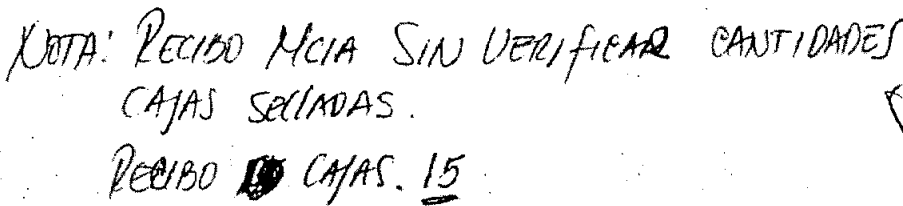 NOTA: RECIBO MCIA SIN VERIFICAR CANTIDADES
CAJAS SELLADAS.
RECIBO CAJAS. 15